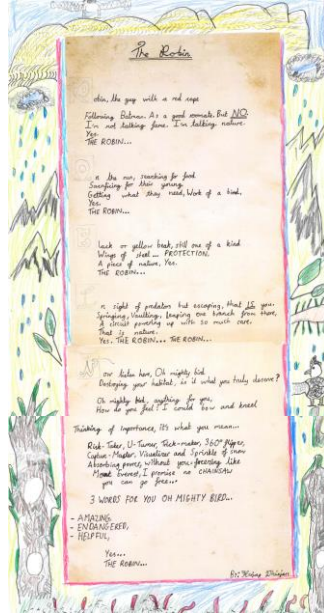 The Robin
obin, the guy with a red cape
Following Batman. As a good roomate. But NO.
I'm not talking fame. I'm talking nature.
Yes.
THE ROBIN...
n the run, searching for food.
Sacrificing for their young,
Getting what they need, Work of a kind.
Yes.
THE ROBIN...
lack or yellow beak, still one of a kind
Wings of steel... PROTECTION.
A piece of nature, Yes.
THE ROBIN...
n sight of predators but escaping, that IS you.
Springing, Vaulting, leaping one branch from there,
A circuit powering up with so much care.
That is nature.
Yes. THE ROBIN... THE ROBIN...
ow listen here, Oh mighty bird
Destroying your habitat, is it what you truly deserve?
Oh mighty bird, anything for you,
How do you feel? I could bow and kneel
Thinking of importance, it's what you mean...
Risk-Taker, U-Turner, Trick-maker, 360° flipper,
Capture-Master, Visualizer and Sprinkle of snow
Absorbing power, without you freezing like
Mount Everest, I promise no CHAINSAW
you can go free...
3 WORDS FOR YOU OH MIGHTY BIRD...
- AMAZING,
- ENDANGERED,
- HELPFUL,
Yes...
THE ROBIN...
By: